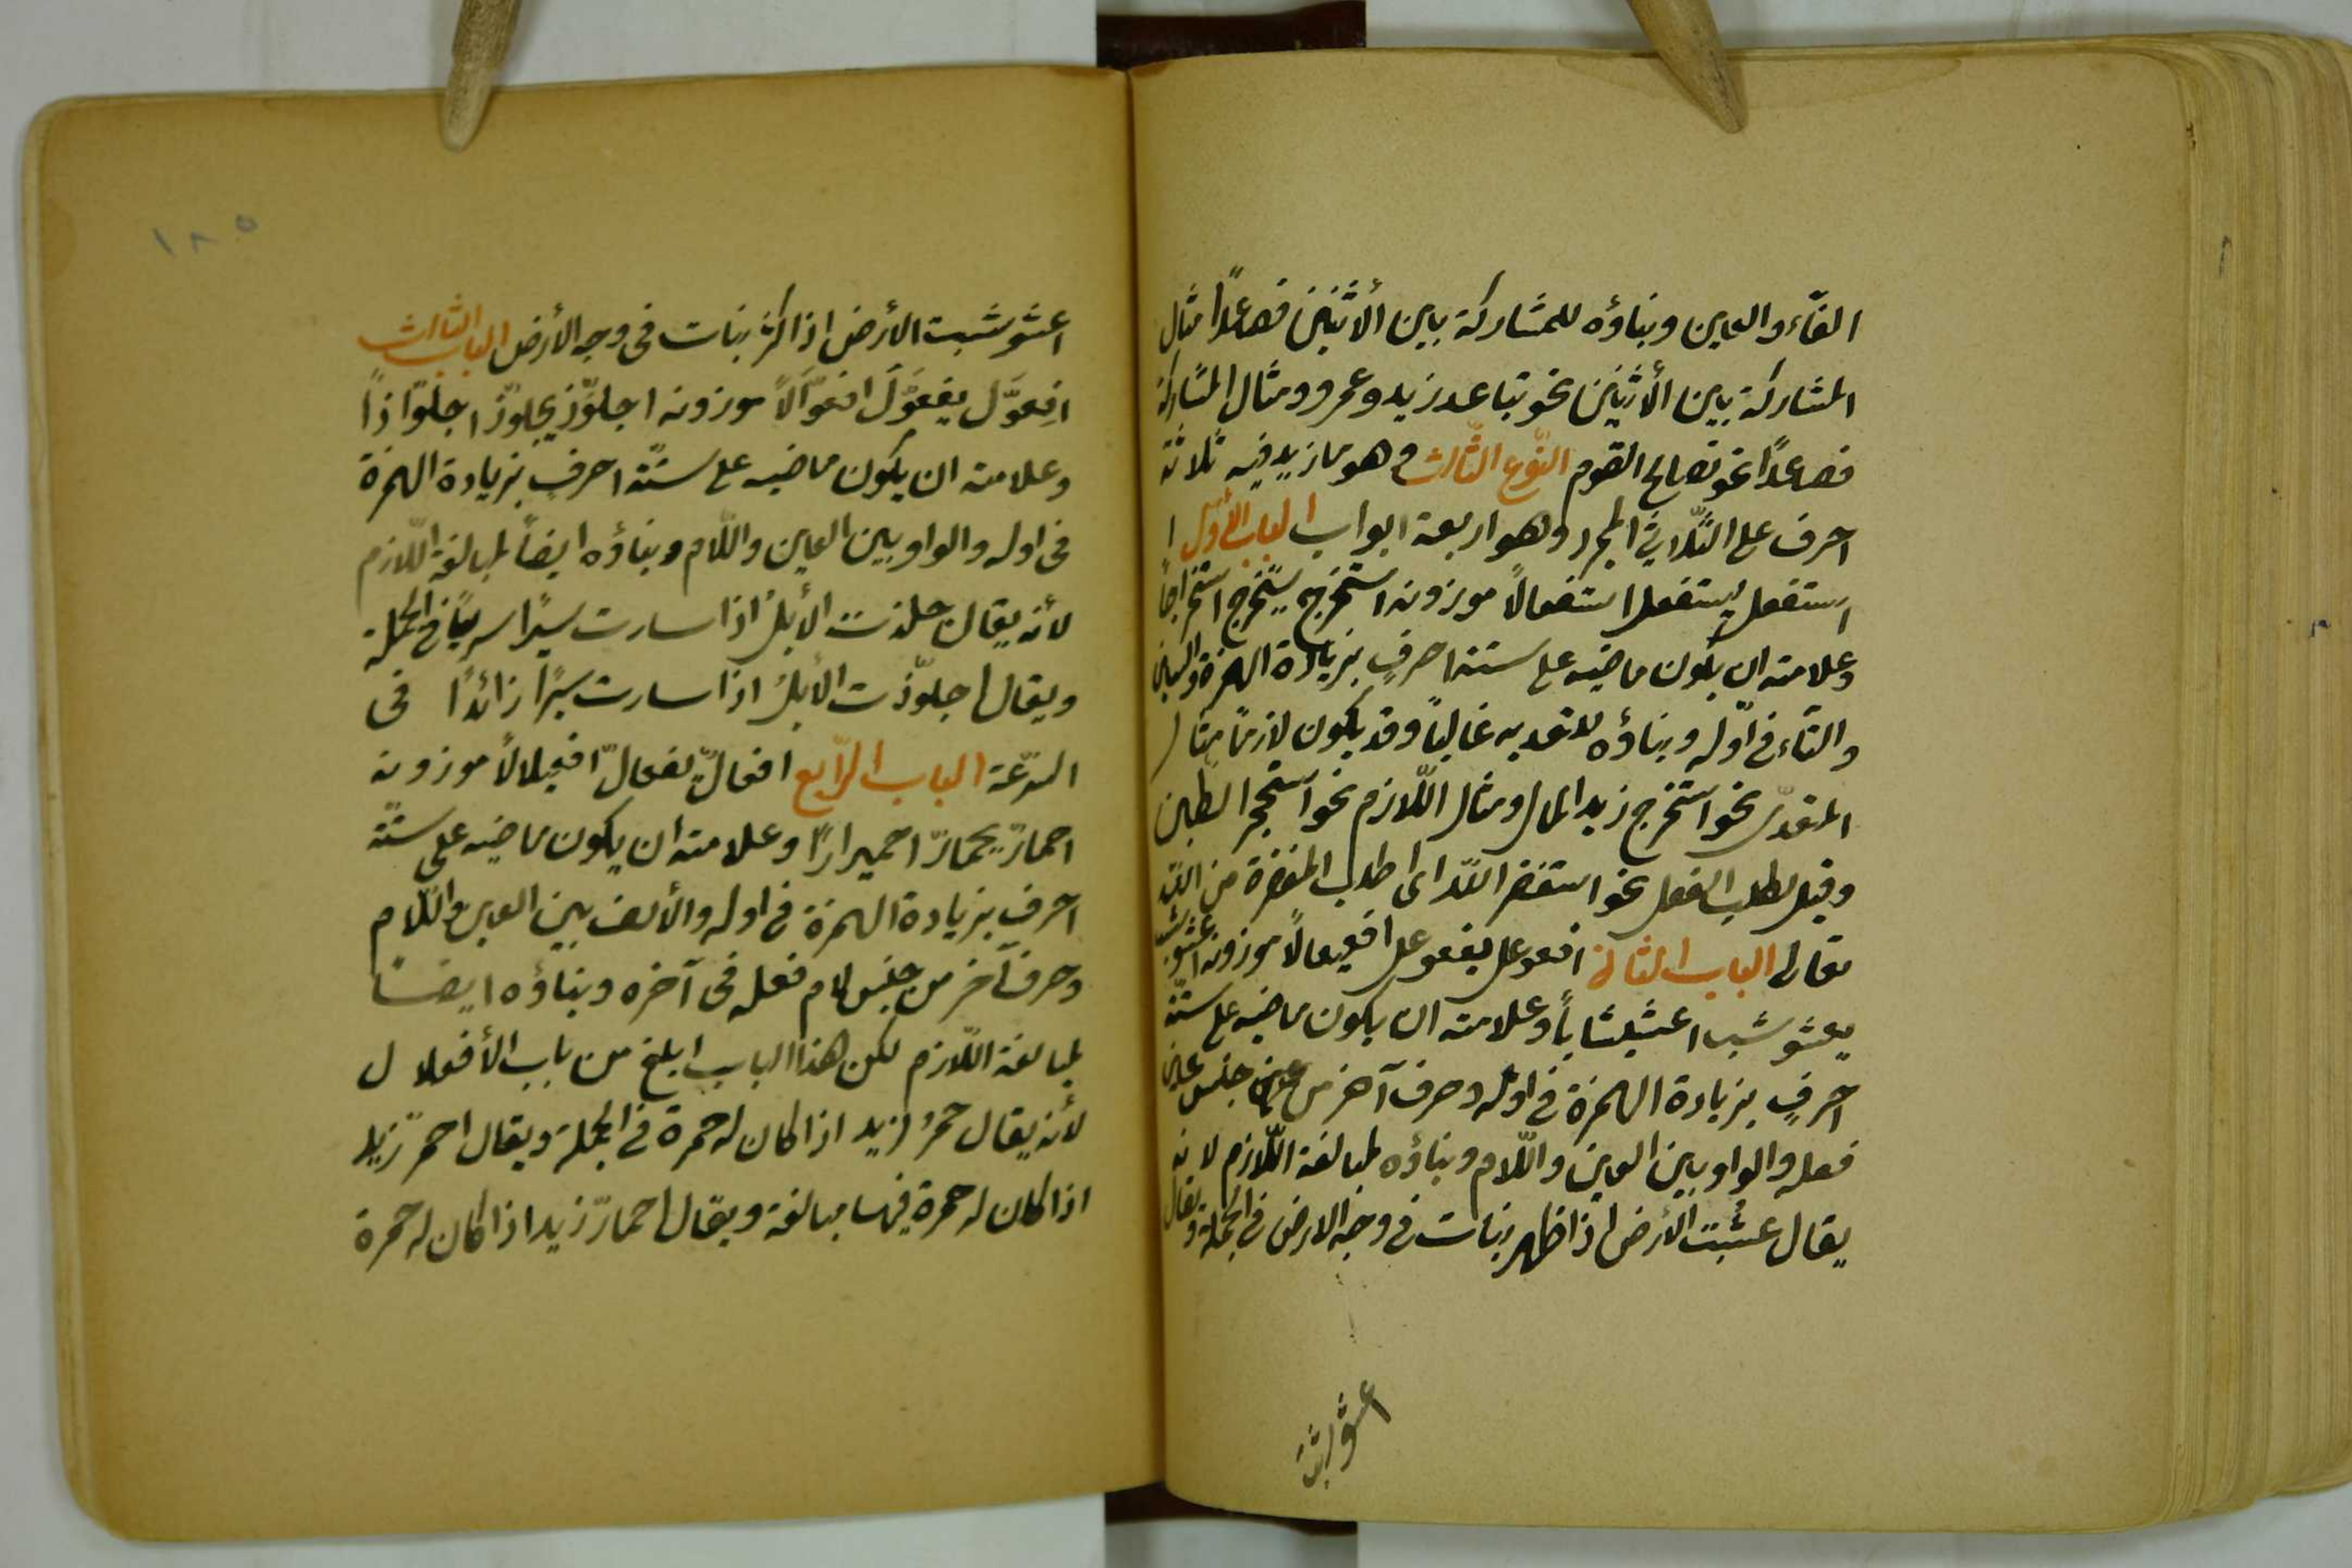 الفآء والعين وبناؤه للمشاركة بين ألاثنين فصاعدًا مثال
المشاركة بين ألأثنين نحو تباعد زيد وعمرو ومثال المشاركة
فصاعدًا نحو تصالح القوم النّوع الثّالث وهو ما زيد فيه ثلاثة
احرف على الثّلاثي المجرد وهو اربعة ابواب الباب الأوّل
استفعل يستفعل استفعالًا موزونه استخرج يستخرج استخراجًا
وعلامته ان يكون ماضيه على ستة احرفٍ بزيادة الهمزة والسين
والتّآء في اوّله وبناؤه للتعديه غالبًا وقد يكون لازمًا مثال
المتعدّى نحو استخرج زيد المال ومثال اللّازم نحو استحجر الطين
وقيل لطلب الفعل نحو استغفر اللّه اى اطلب المغفرة من اللّه
تعالى الباب الثانى افعوعل يفعوعل افعيعالًا موزونه اعشوشب
يعشوشب اعشيشابًا وعلامته ان يكون ماضيه على ستّة
احرفٍ بزيادة الهمزة في اوله وحرف آخر من جنس عين
فعله والواو بين العين واللّام وبناؤه لمبالغة اللّازم لانه
يقال عشبت الأرض اذا ظهر نبات في وجه الارض في الجملة ويقال
اعشوشبت الأرض اذا كثر نبات فى وجه الأرض الباب الثالث
افعوَّل يفعوّل افعوّالًا موزونه اجلوّذ يجلوّذ اجلوّاذًا
وعلامته ان يكون ماضيه على ستّة احرفٍ بزيادة الهمزة
فى اوله والواو بين العين واللّام وبناؤه ايضًا لمبالغة اللّازم
لأنه يقال جلذت الأبل اذا سارت سيرًا سريعًا في الجملة
ويقال اجلوّذت الأبل اذا سارت سيرًا زائدًا فى
السرّعة الباب الرّابع افعالّ يفعالّ افعيلالًا موزونه
احمارّ يحمارّ احميرارًا وعلامته ان يكون ماضيه على ستّة
احرفٍ بزيادة الهمزة في اوله والألف بين العين واللّام
وحرف آخر من جنس لام فعله فى آخره وبناؤه ايضًا
لمبالغة اللّازم لكن هذا الباب ابلغ من باب الأفعلال
لأنه يقال حمرُ زيد اذا كان له حمرة في الجملة ويقال احمرّ زيد
اذا كان له حمرة فيها مبالغة ويقال احمارّ زيد اذا كان له حمرة
١٨٥